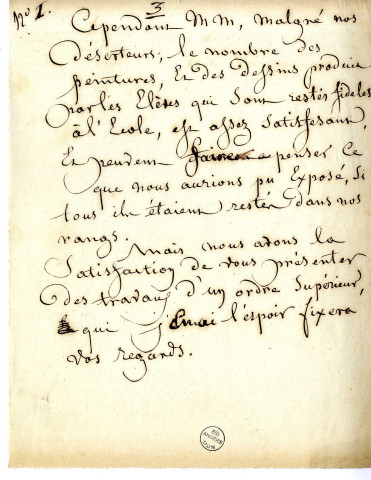 No 1.
3
Cependant MM, malgré nos
déserteurs, le nombre des
peintures, Et des dessins produit
par les Elèves qui sont restés fideles
à l'Ecole, est assez satisfesant,
Et peuvent faire penser ce
que nous aurions pu Exposé, Si
tous ils étaient restés dans nos
rangs.
Mais nous avons la
Satisfaction de vous présenter
des travaux d'un ordre Supérieur,
qui j'en ai l'espoir fixera
vos regards.